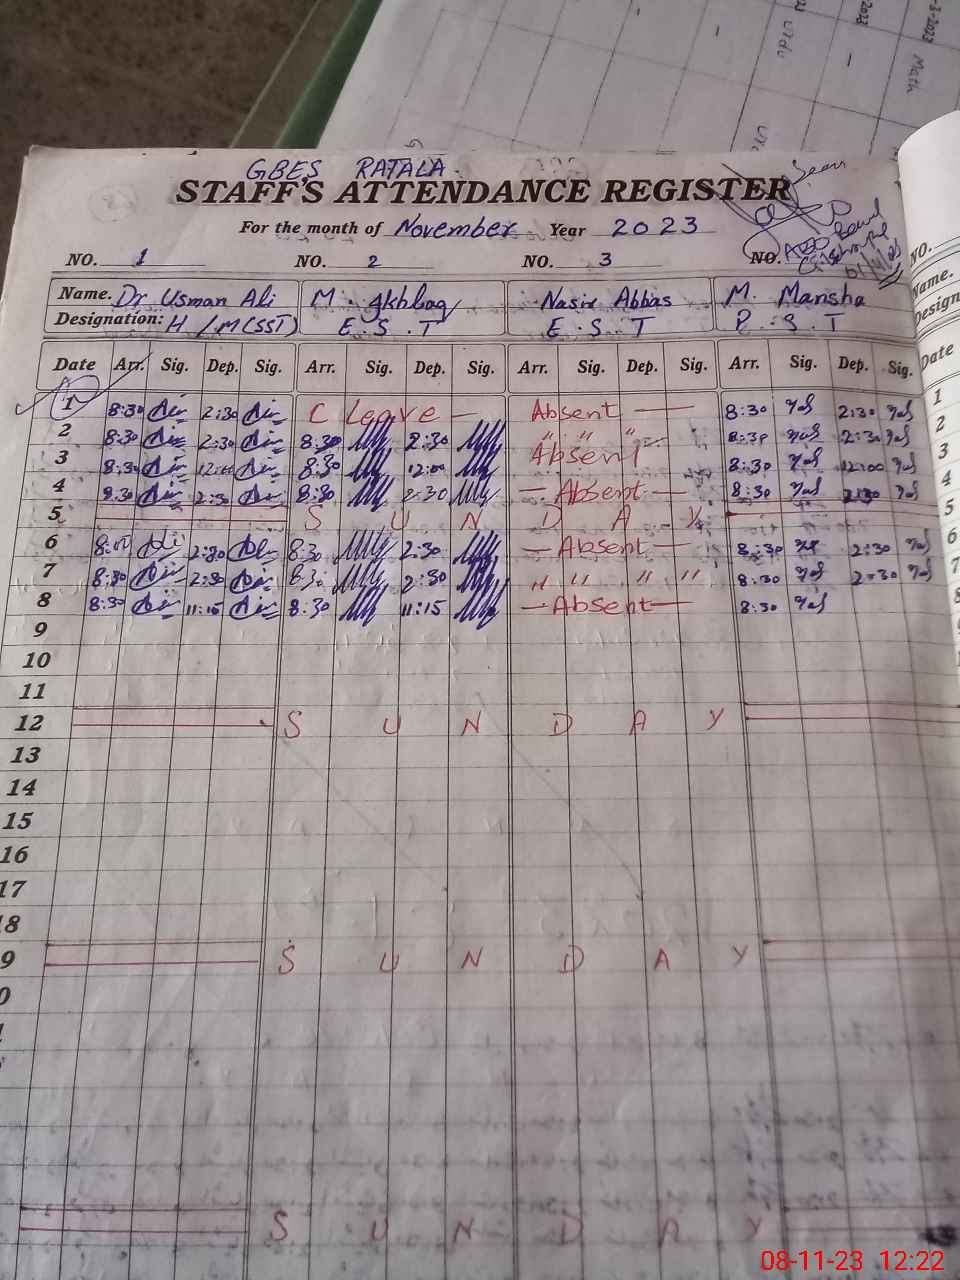 -3-2023
2023
Math
Urdu
GBES RATALA
STAFF'S ATTENDANCE REGISTER
Seen
For the month of November Year 2023
NO. 1 NO. 2 NO. 3 NO.
Name. Dr Usman Ali M. Nasir Abbas M. Mansha
Designation: H/M(SST) E.S.T E.S.T P.S.T
Date Arr. Sig. Dep. Sig. Arr. Sig. Dep. Sig. Arr. Sig. Dep. Sig. Arr. Sig. Dep. Sig.
1 8:30 2:30 C Leave — Absent — 8:30 2:30
2 8:30 2:30 8:30 2:30 " " " 8:30 2:30
3 8:30 12:00 8:30 12:00 Absent 8:30 12:00
4 8:30 2:30 8:30 2:30 — Absent — 8:30 2:30
5 S U N D A Y
6 8:30 2:30 8:30 2:30 — Absent — 8:30 2:30
7 8:30 2:30 8:30 2:30 " " " " 8:30 2:30
8 8:30 11:15 8:30 11:15 — Absent — 8:30
9
10
11
12 S U N D A Y
13
14
15
16
17
18
9 S U N D A Y
0
S U N D A Y
NO.
Name.
Design
Date
1
2
3
4
5
6
7
8
08-11-23 12:22